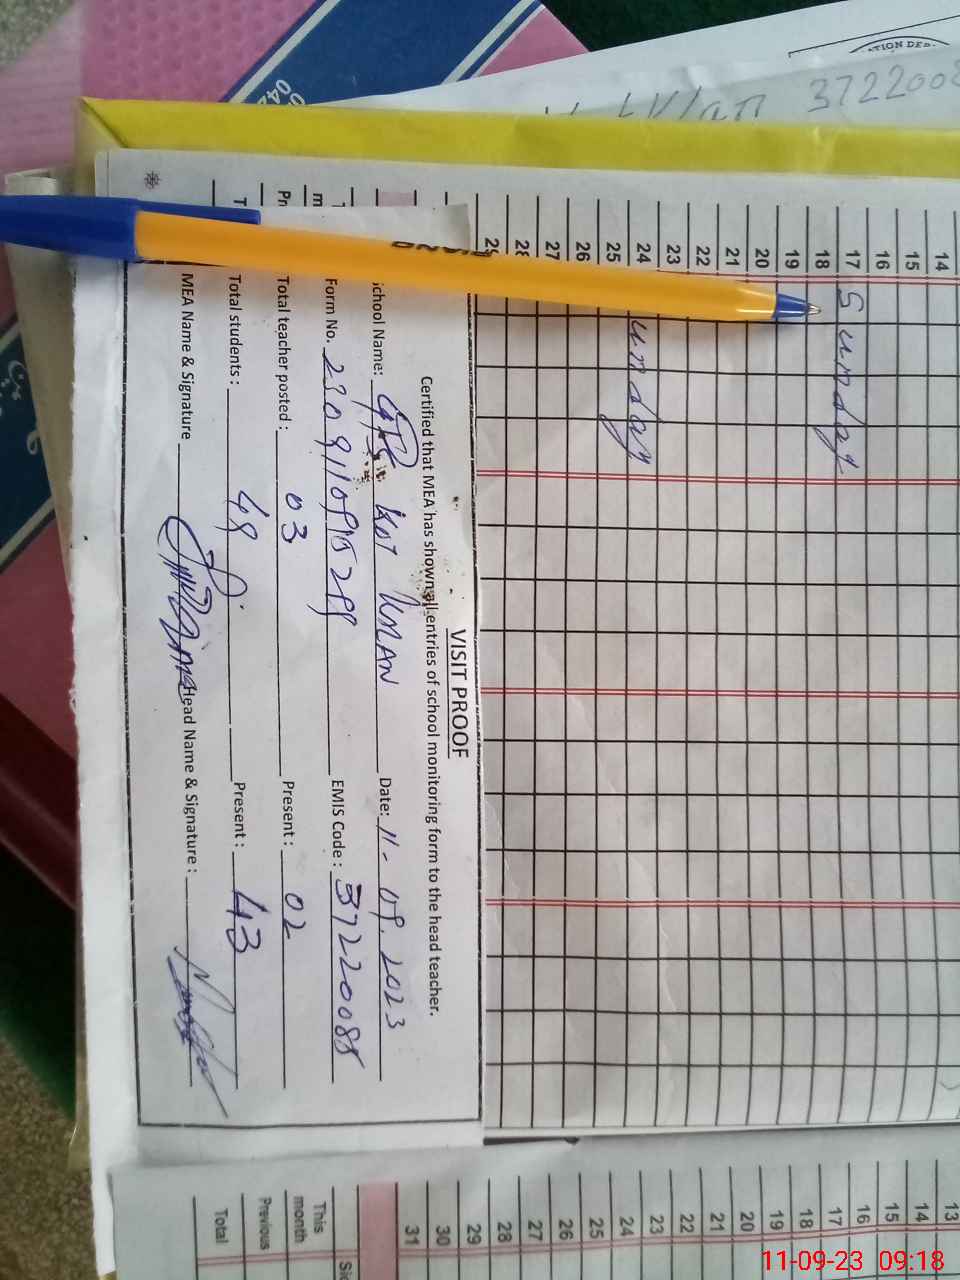 VISIT PROOF
Certified that MEA has shown all entries of school monitoring form to the head teacher.
School Name: GPS KOT KHAN Date: 11-09.2023
Form No. EMIS Code: 37220088
Total teacher posted: 03 Present: 02
Total students: 49 Present: 43
MEA Name & Signature Head Name & Signature:
14
15
16
17 Sunday
18
19
20
21
22
23
24 unday
25
26
27
28
29
13
14
15
16
17
18
19
20
21
22
23
24
25
26
27
28
29
30
31
This month
Previous
Total
3722008
11-09-23 09:18